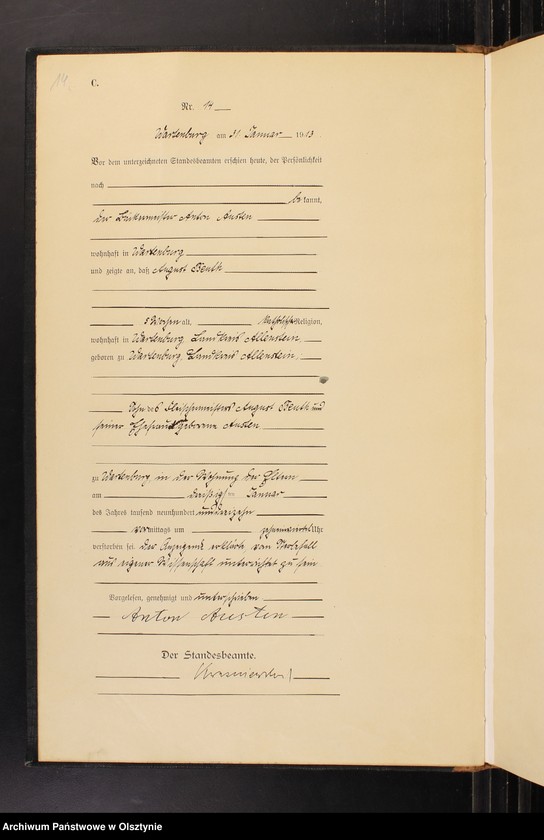 14.
C.
Nr. 14
Wartenburg am 31 Januar 1913.
Vor dem unterzeichneten Standesbeamten erschien heute, der Persönlichkeit
nach
bekannt,
der Bäckermeister Anton Austen
wohnhaft in Wartenburg
und zeigte an, daß August Benth
5 Wochen alt, katholischer Religion,
wohnhaft in Wartenburg Landkreis Allenstein,
geboren zu Wartenburg Landkreis Allenstein,
Sohn des Fleischermeisters August Benth und
seiner Ehefrau geborene Austen
zu Wartenburg in der Wohnung der Eltern
am dreißigsten Januar
des Jahres tausend neunhundert und dreizehn
vormittags um Uhr
verstorben sei. Der Anzeigende erklärte von Sterbefall
aus eigener Wissenschaft unterrichtet zu sein
Vorgelesen, genehmigt und unterschrieben
Anton Austen
Der Standesbeamte.
Archiwum Państwowe w Olsztynie